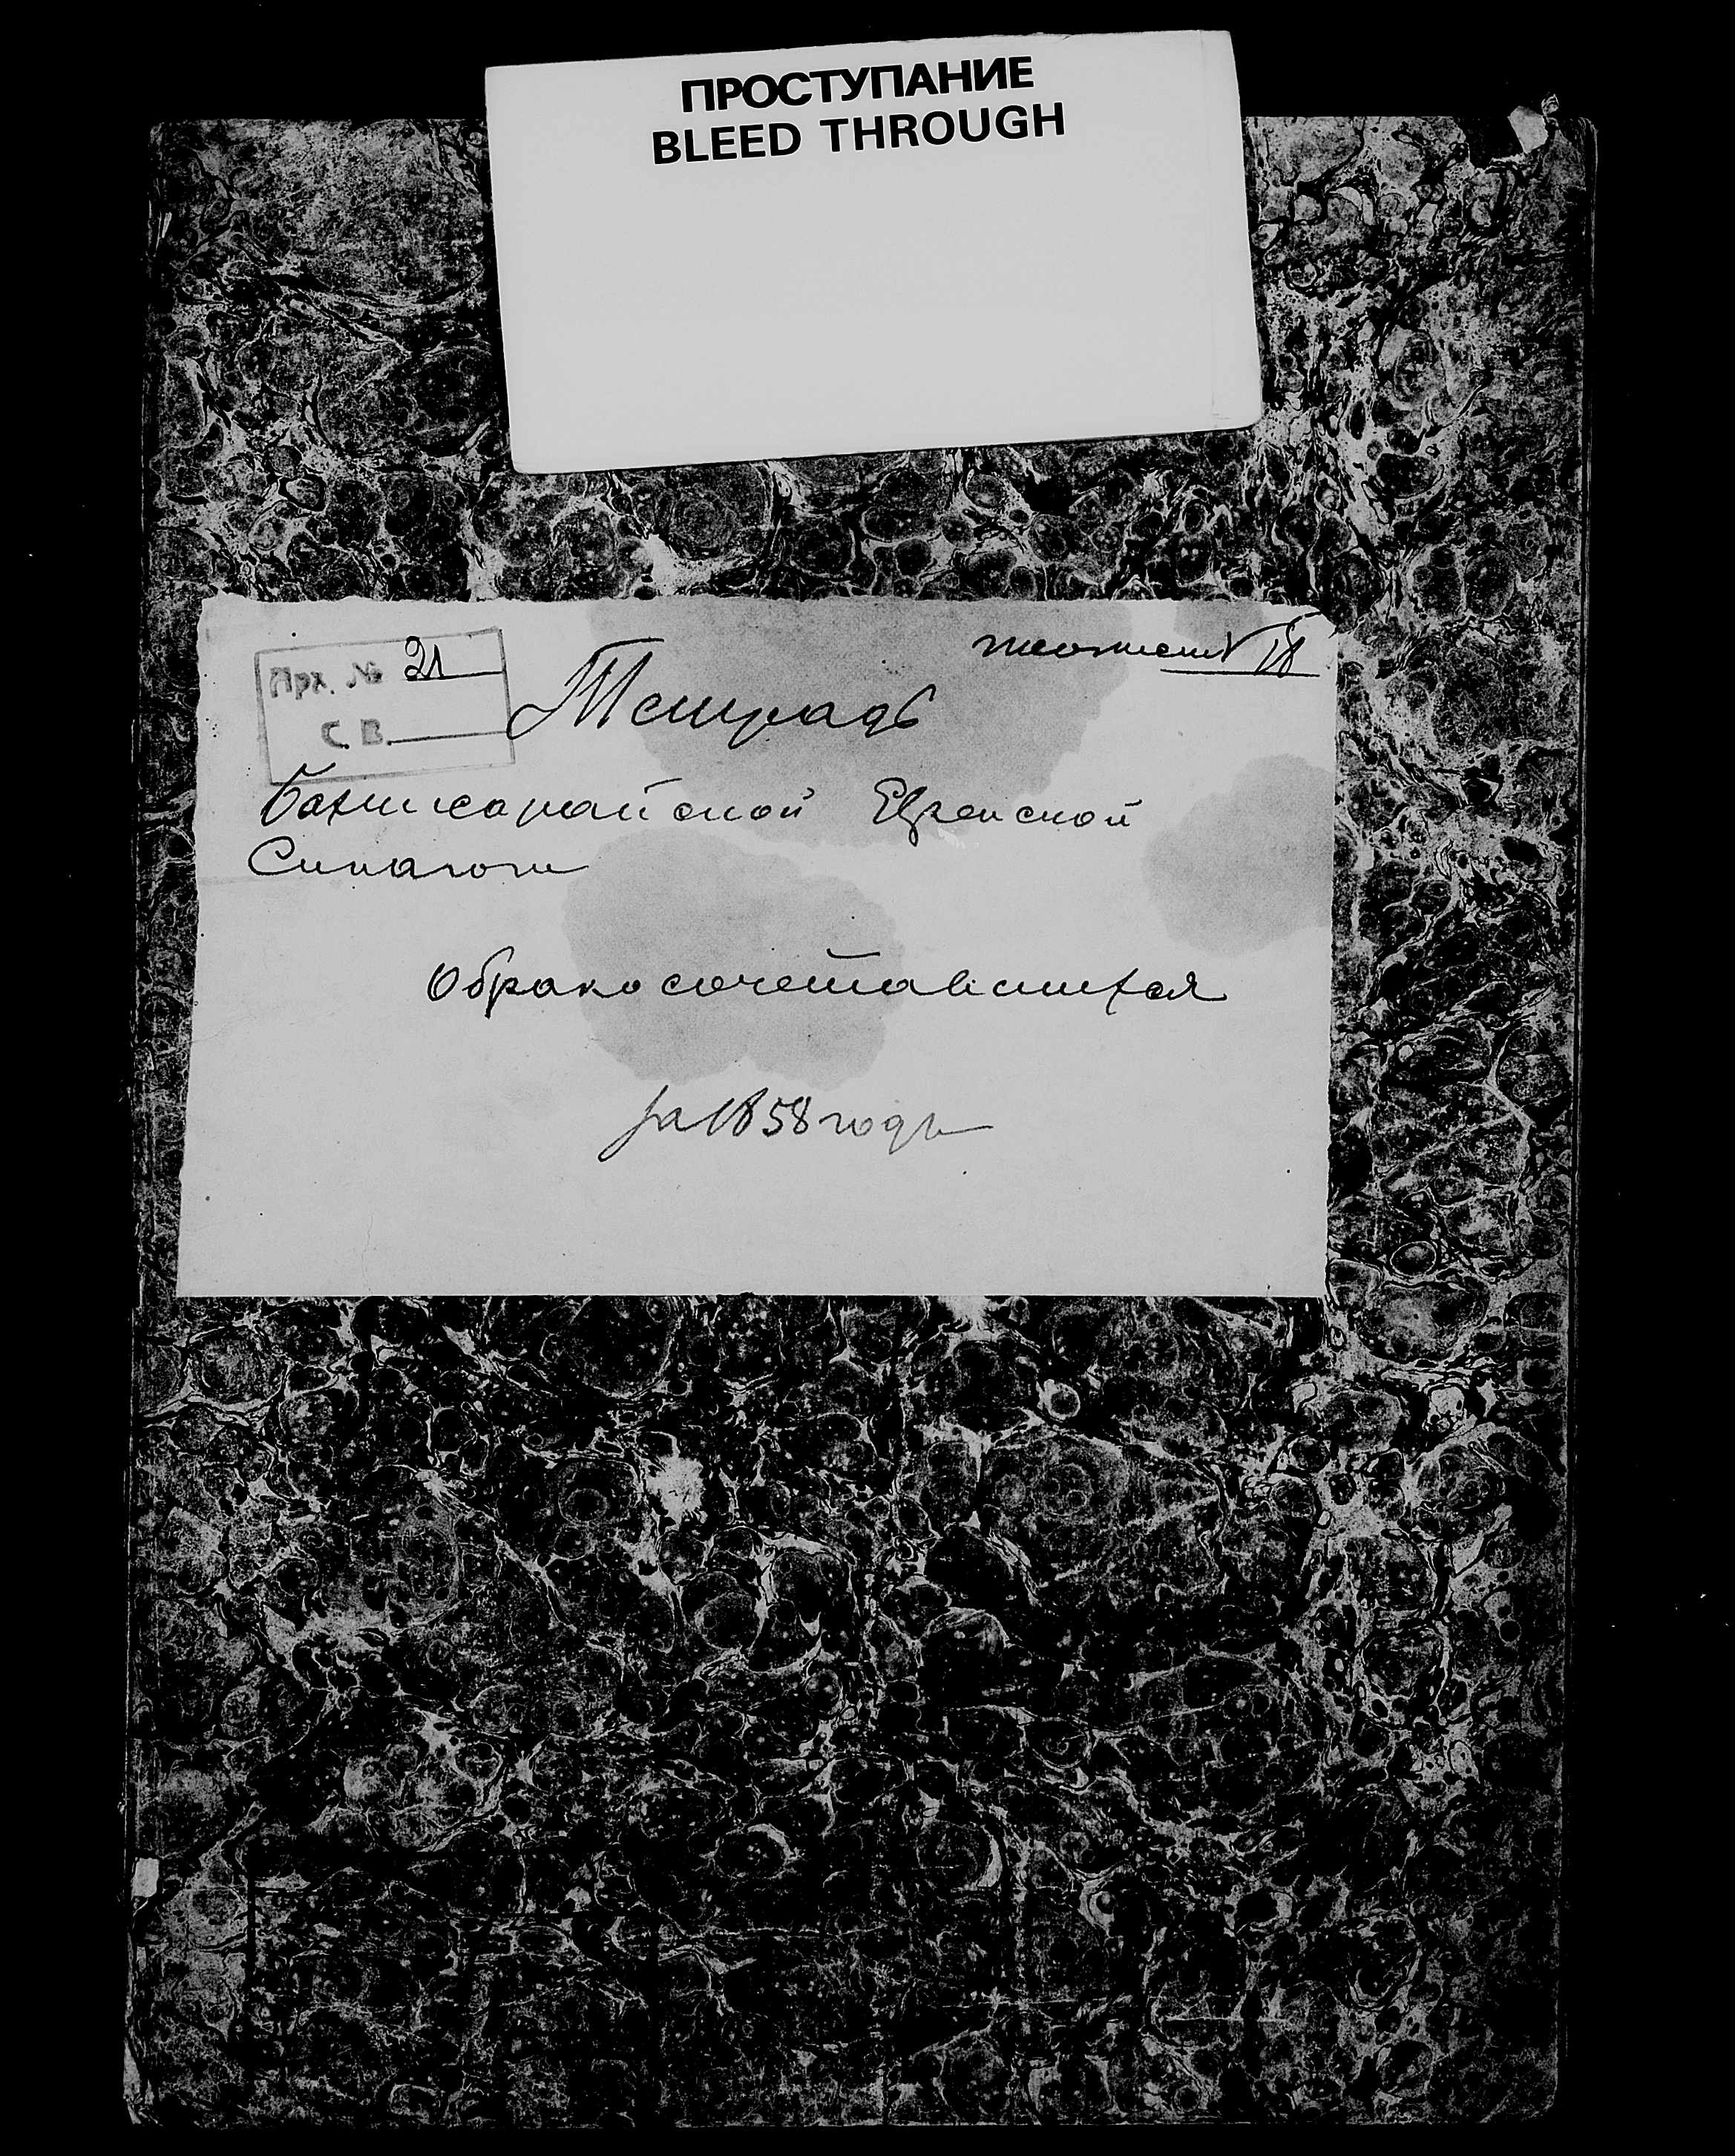 ПРОСТУПАНИЕ
BLEED THROUGH
Арх. № 21
С. В.
Тетрадь
Бахчисарайской Еврейской
Синагоги
О бракосочетавшихся
за 1858 годъ